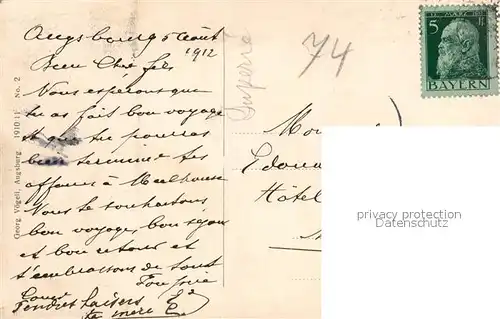 Augsbourg 5 août
1912
Bien cher fils
Nous espérons que
tu as fait bon voyage
et que tu pourras
bien terminer tes
affaires à Mulhouse
Nous te souhaitons
bon voyage, bon séjour
et bon retour et
t'embrassons de tout
Ton père
Tendres baisers
ta mère
Georg Vögeli, Augsburg 1910 11 No. 2
74
5
BAYERN
Edoua
Hôtel
privacy protection
Datenschutz